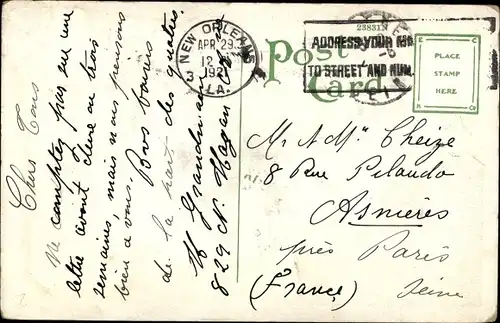 Chers Tous
Ne comptez pas sur une
lettre avant deux ou trois
semaines, mais nous pensons
bien à vous.
Bons baisers
de la part des quatre.
829 N. Hagan
NEW ORLEANS
APR 29
12
3 1921
LA.
23831N
ADDRESS YOUR MAIL
TO STREET AND NUM
Post
Card
PLACE
STAMP
HERE
Mr & Me Cheize
8 Rue
Asnières
près Paris
(France) Seine